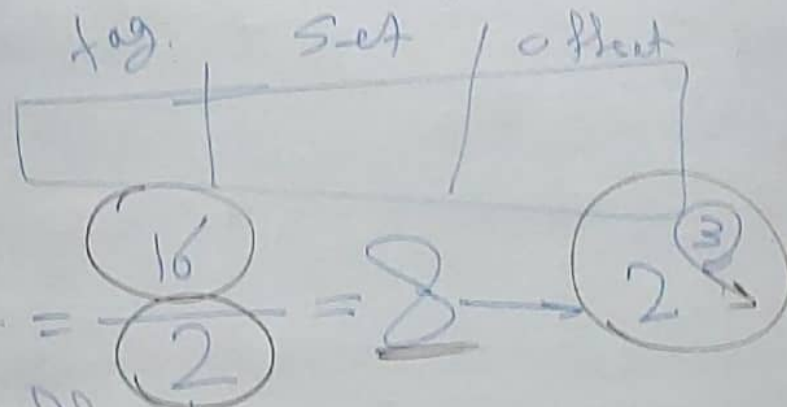 tag. Set offset
= 16/2 = 8 → 2³